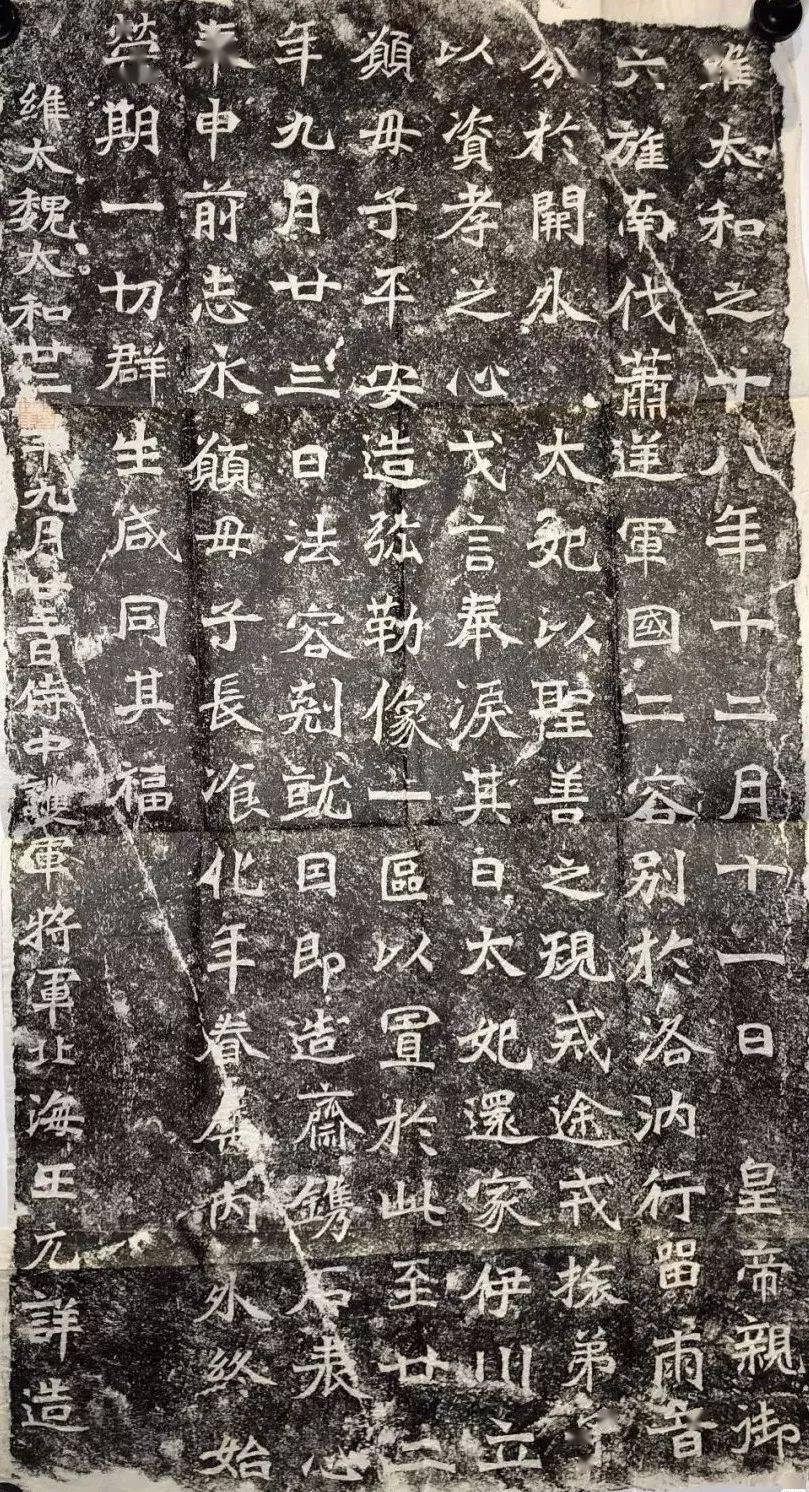 維太和之十八年十二月十一日 皇帝親御
六旌南伐蕭逆軍國二容別於洛汭行留雨音
分於關外 太妃以聖善之規戒途戒旅弟子
以資孝之心戈言奉淚其日太妃還家伊川立
願毋子平安造弥勒像一區以置於此至廿二
年九月廿三日法容剋就因即造齋鐫石表心
奉申前志永願毋子長飡化年眷屬內外終始
榮期一切群生咸同其福
維太魏太和廿二年九月廿三日侍中護軍將軍北海王元詳造